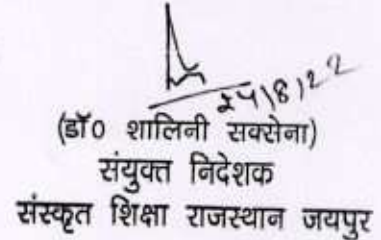 24/8/22
(डॉ0 शालिनी सक्सेना)
संयुक्त निदेशक
संस्कृत शिक्षा राजस्थान जयपुर